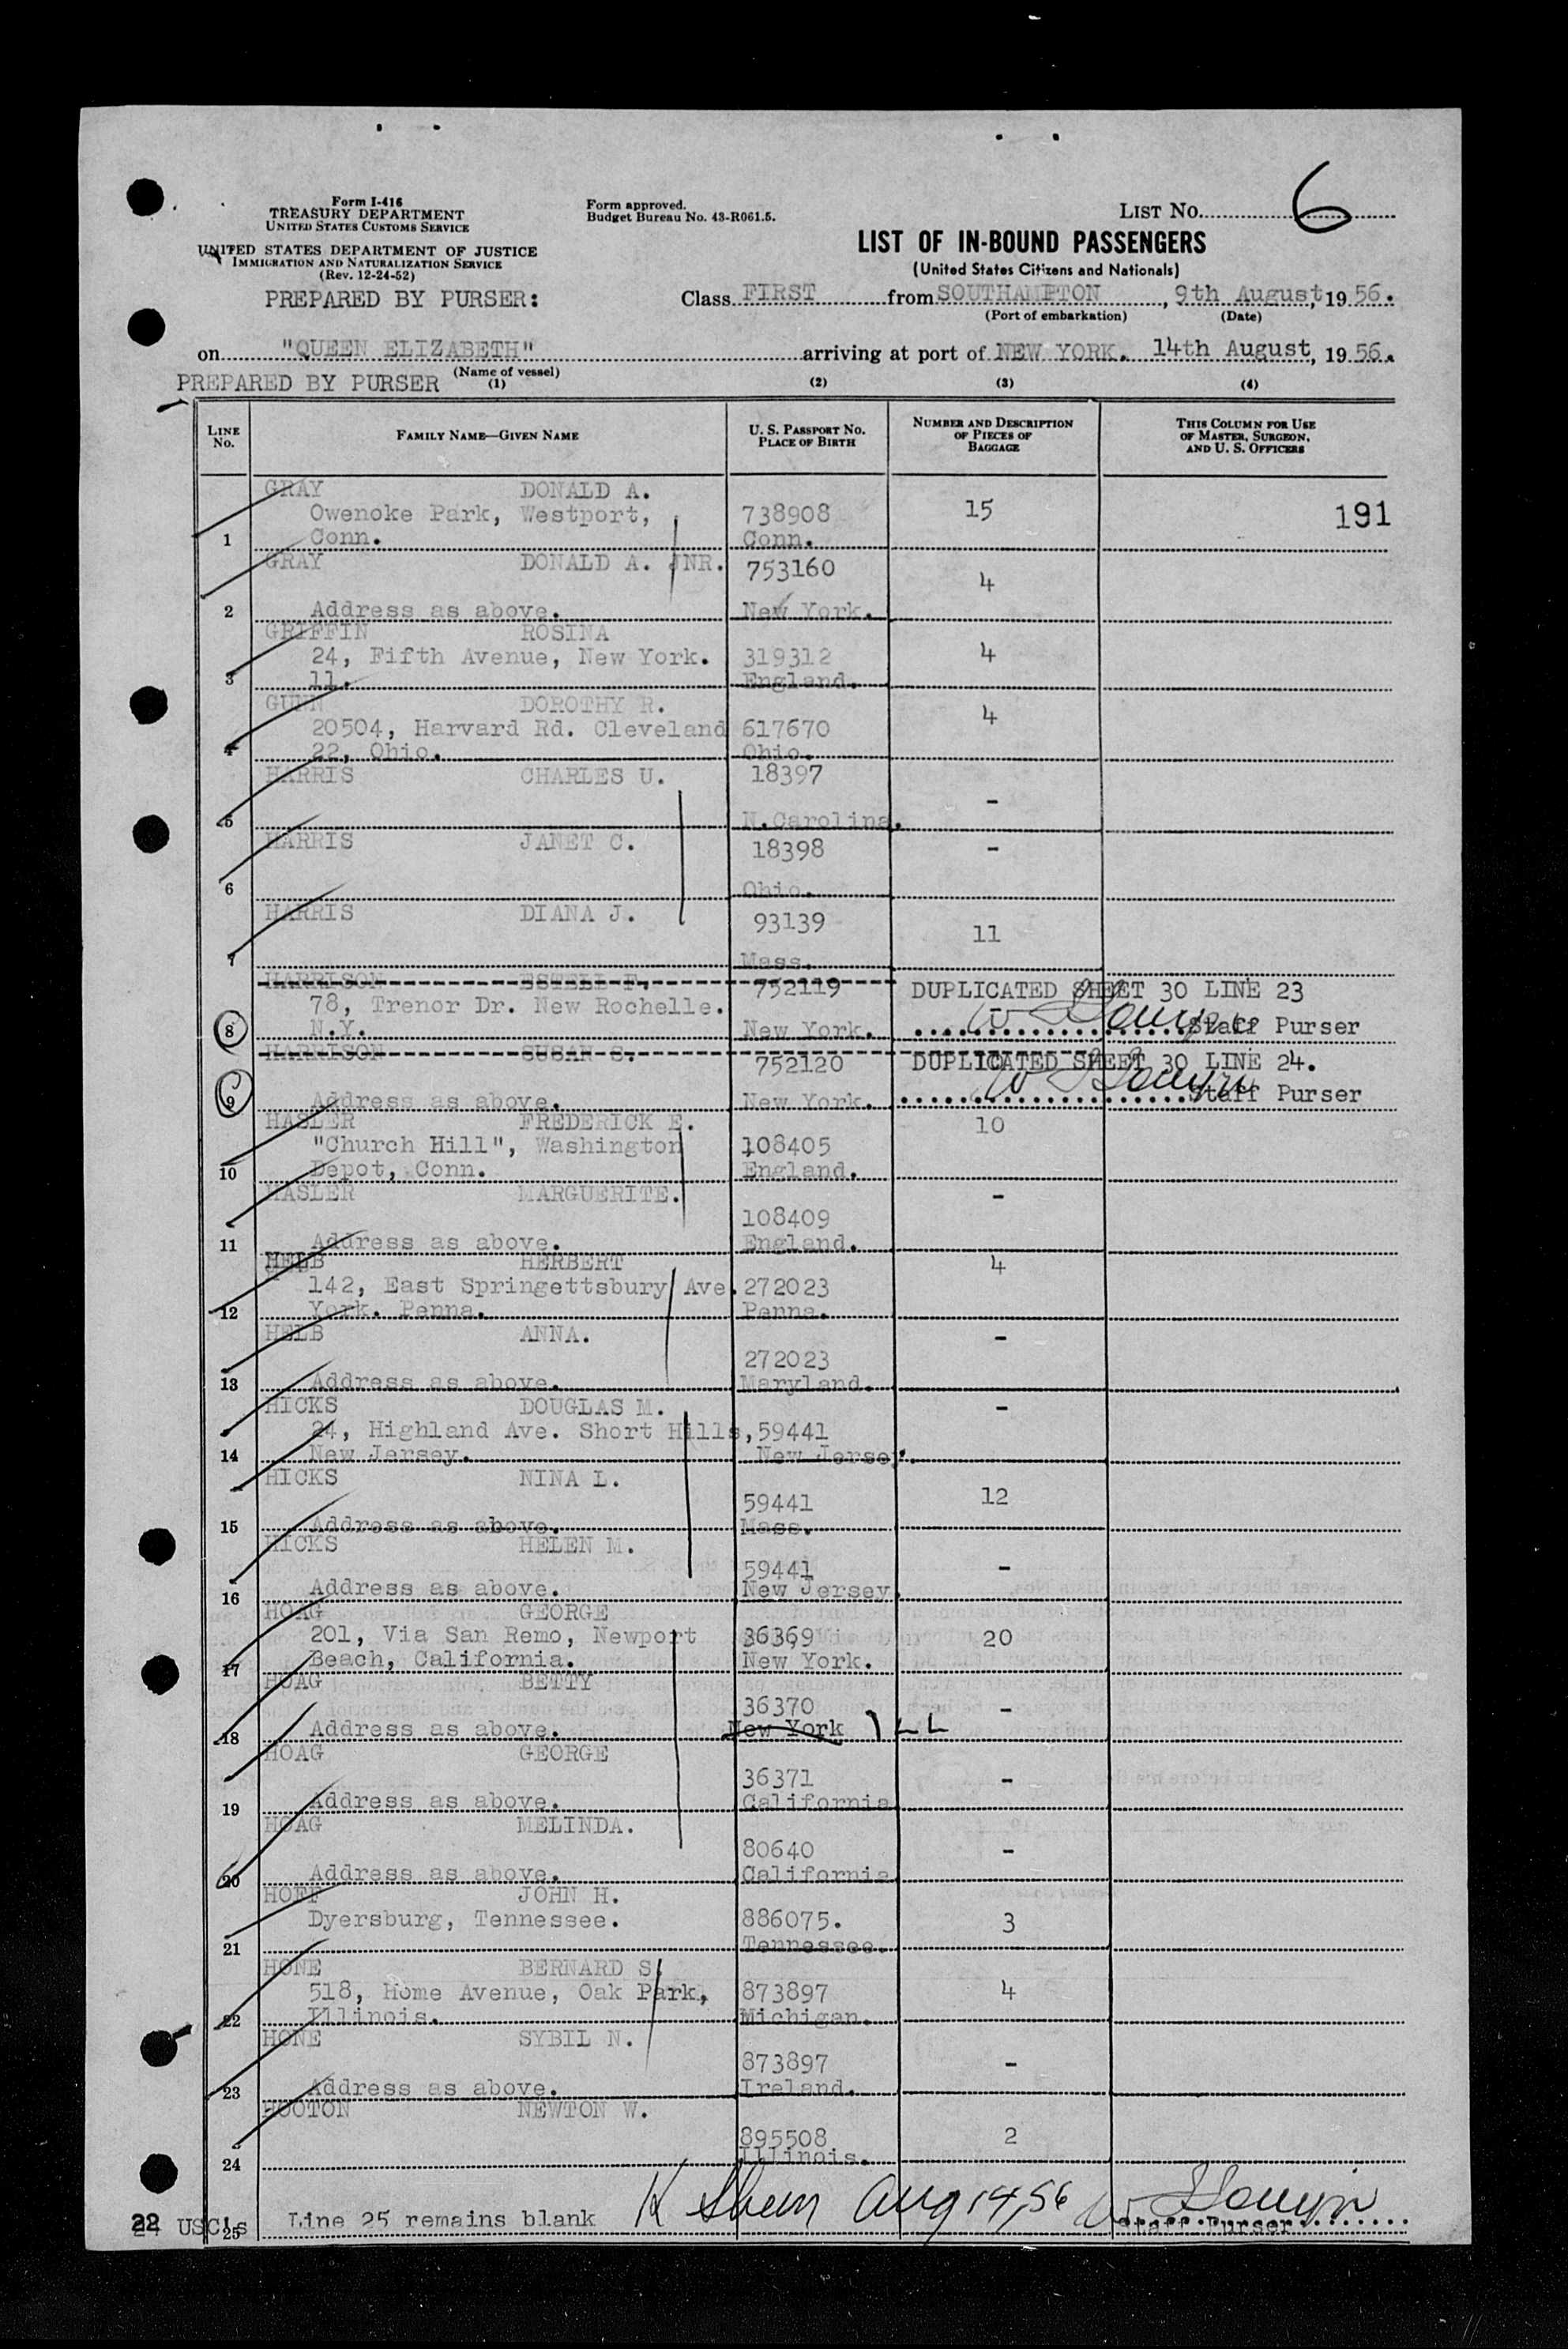 Form I-416
TREASURY DEPARTMENT
UNITED STATES CUSTOMS SERVICE
UNITED STATES DEPARTMENT OF JUSTICE
IMMIGRATION AND NATURALIZATION SERVICE
(Rev. 12-24-52)
PREPARED BY PURSER:
Form approved.
Budget Bureau No. 43-R061.5.
LIST NO. 6
LIST OF IN-BOUND PASSENGERS
(United States Citizens and Nationals)
Class FIRST from SOUTHAMPTON, 9th August, 1956.
(Port of embarkation) (Date)
on "QUEEN ELIZABETH" arriving at port of NEW YORK. 14th August, 1956.
(Name of vessel)
PREPARED BY PURSER (1) (2) (3) (4)
LINE NO. FAMILY NAME—GIVEN NAME U. S. PASSPORT NO. PLACE OF BIRTH NUMBER AND DESCRIPTION OF PIECES OF BAGGAGE THIS COLUMN FOR USE OF MASTER, SURGEON, AND U. S. OFFICERS
GRAY DONALD A.
Owenoke Park, Westport, 738908 15 191
1 Conn. Conn.
GRAY DONALD A. JNR. 753160 4
2 Address as above. New York.
GRIFFIN ROSINA
24, Fifth Avenue, New York. 319312 4
3 11. England.
GUNN DOROTHY R. 4
20504, Harvard Rd. Cleveland 617670
4 22, Ohio. Ohio.
HARRIS CHARLES U. 18397
-
5 N.Carolina.
HARRIS JANET C. 18398 -
6 Ohio.
HARRIS DIANA J. 93139 11
7 Mass.
HARRISON ESTELL F. 752119 DUPLICATED SHEET 30 LINE 23
78, Trenor Dr. New Rochelle.
8 N.Y. New York. Staff Purser
HARRISON SUSAN S. 752120 DUPLICATED SHEET 30 LINE 24.
9 Address as above. New York. Staff Purser
HASLER FREDERICK E. 10
"Church Hill", Washington 108405
10 Depot, Conn. England.
HASLER MARGUERITE. -
108409
11 Address as above. England.
HELB HERBERT 4
142, East Springettsbury Ave. 272023
12 York. Penna. Penna.
HELB ANNA. -
272023
13 Address as above. Maryland.
HICKS DOUGLAS M. -
24, Highland Ave. Short Hills, 59441
14 New Jersey. New Jersey.
HICKS NINA L.
59441 12
15 Address as above. Mass.
HICKS HELEN M.
59441 -
16 Address as above. New Jersey.
HOAG GEORGE
201, Via San Remo, Newport 36369 20
17 Beach, California. New York.
HOAG BETTY
36370 -
18 Address as above. New York ILL
HOAG GEORGE
36371 -
19 Address as above. California
HOAG MELINDA.
80640 -
20 Address as above. California
HOFF JOHN H.
Dyersburg, Tennessee. 886075. 3
21 Tennessee.
HONE BERNARD S.
518, Home Avenue, Oak Park, 873897 4
22 Illinois. Michigan.
HONE SYBIL N.
873897 -
23 Address as above. Ireland.
HOOTON NEWTON W.
895508 2
24 Illinois.
Aug 14, 56
22 USC's 25 Line 25 remains blank Staff Purser